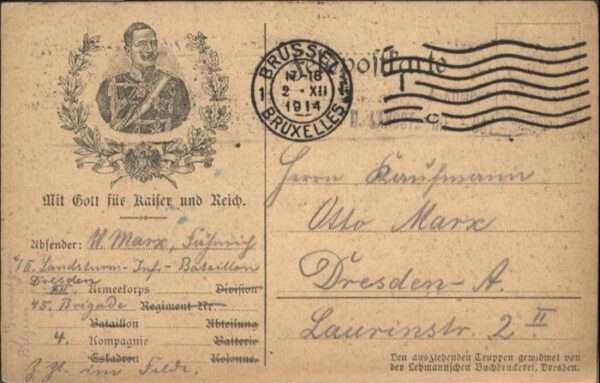 Feldpostkarte
BRÜSSEL
17-18
2 - XII
1914
1
BRUXELLES
Mit Gott für Kaiser und Reich.
Absender: U. Marx, Fähnrich
Landsturm-Inf.-Bataillon
Dresden
XII. Armeekorps Division
45. Brigade Regiment Nr.
Bataillon Abteilung
4. Kompagnie Batterie
Eskadron Kolonne.
z. Zt. im Felde.
Herrn Kaufmann
Otto Marx
Dresden-A.
Laurinstr. 2 II
Den ausziehenden Truppen gewidmet von
der Lehmannschen Buchdruckerei, Dresden.